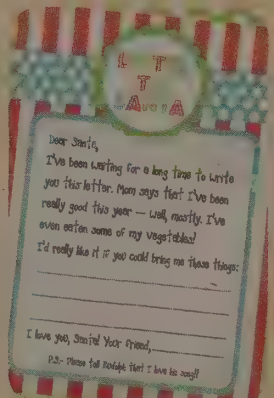 Dear Santa,
I've been waiting for a long time to write
you this letter. Mom says that I've been
really good this year — well, mostly. I've
even eaten some of my vegetables!
I'd really like it if you could bring me these things:
I love you, Santa! Your friend,
P.S.- Please tell Rudolph that I love his song!!